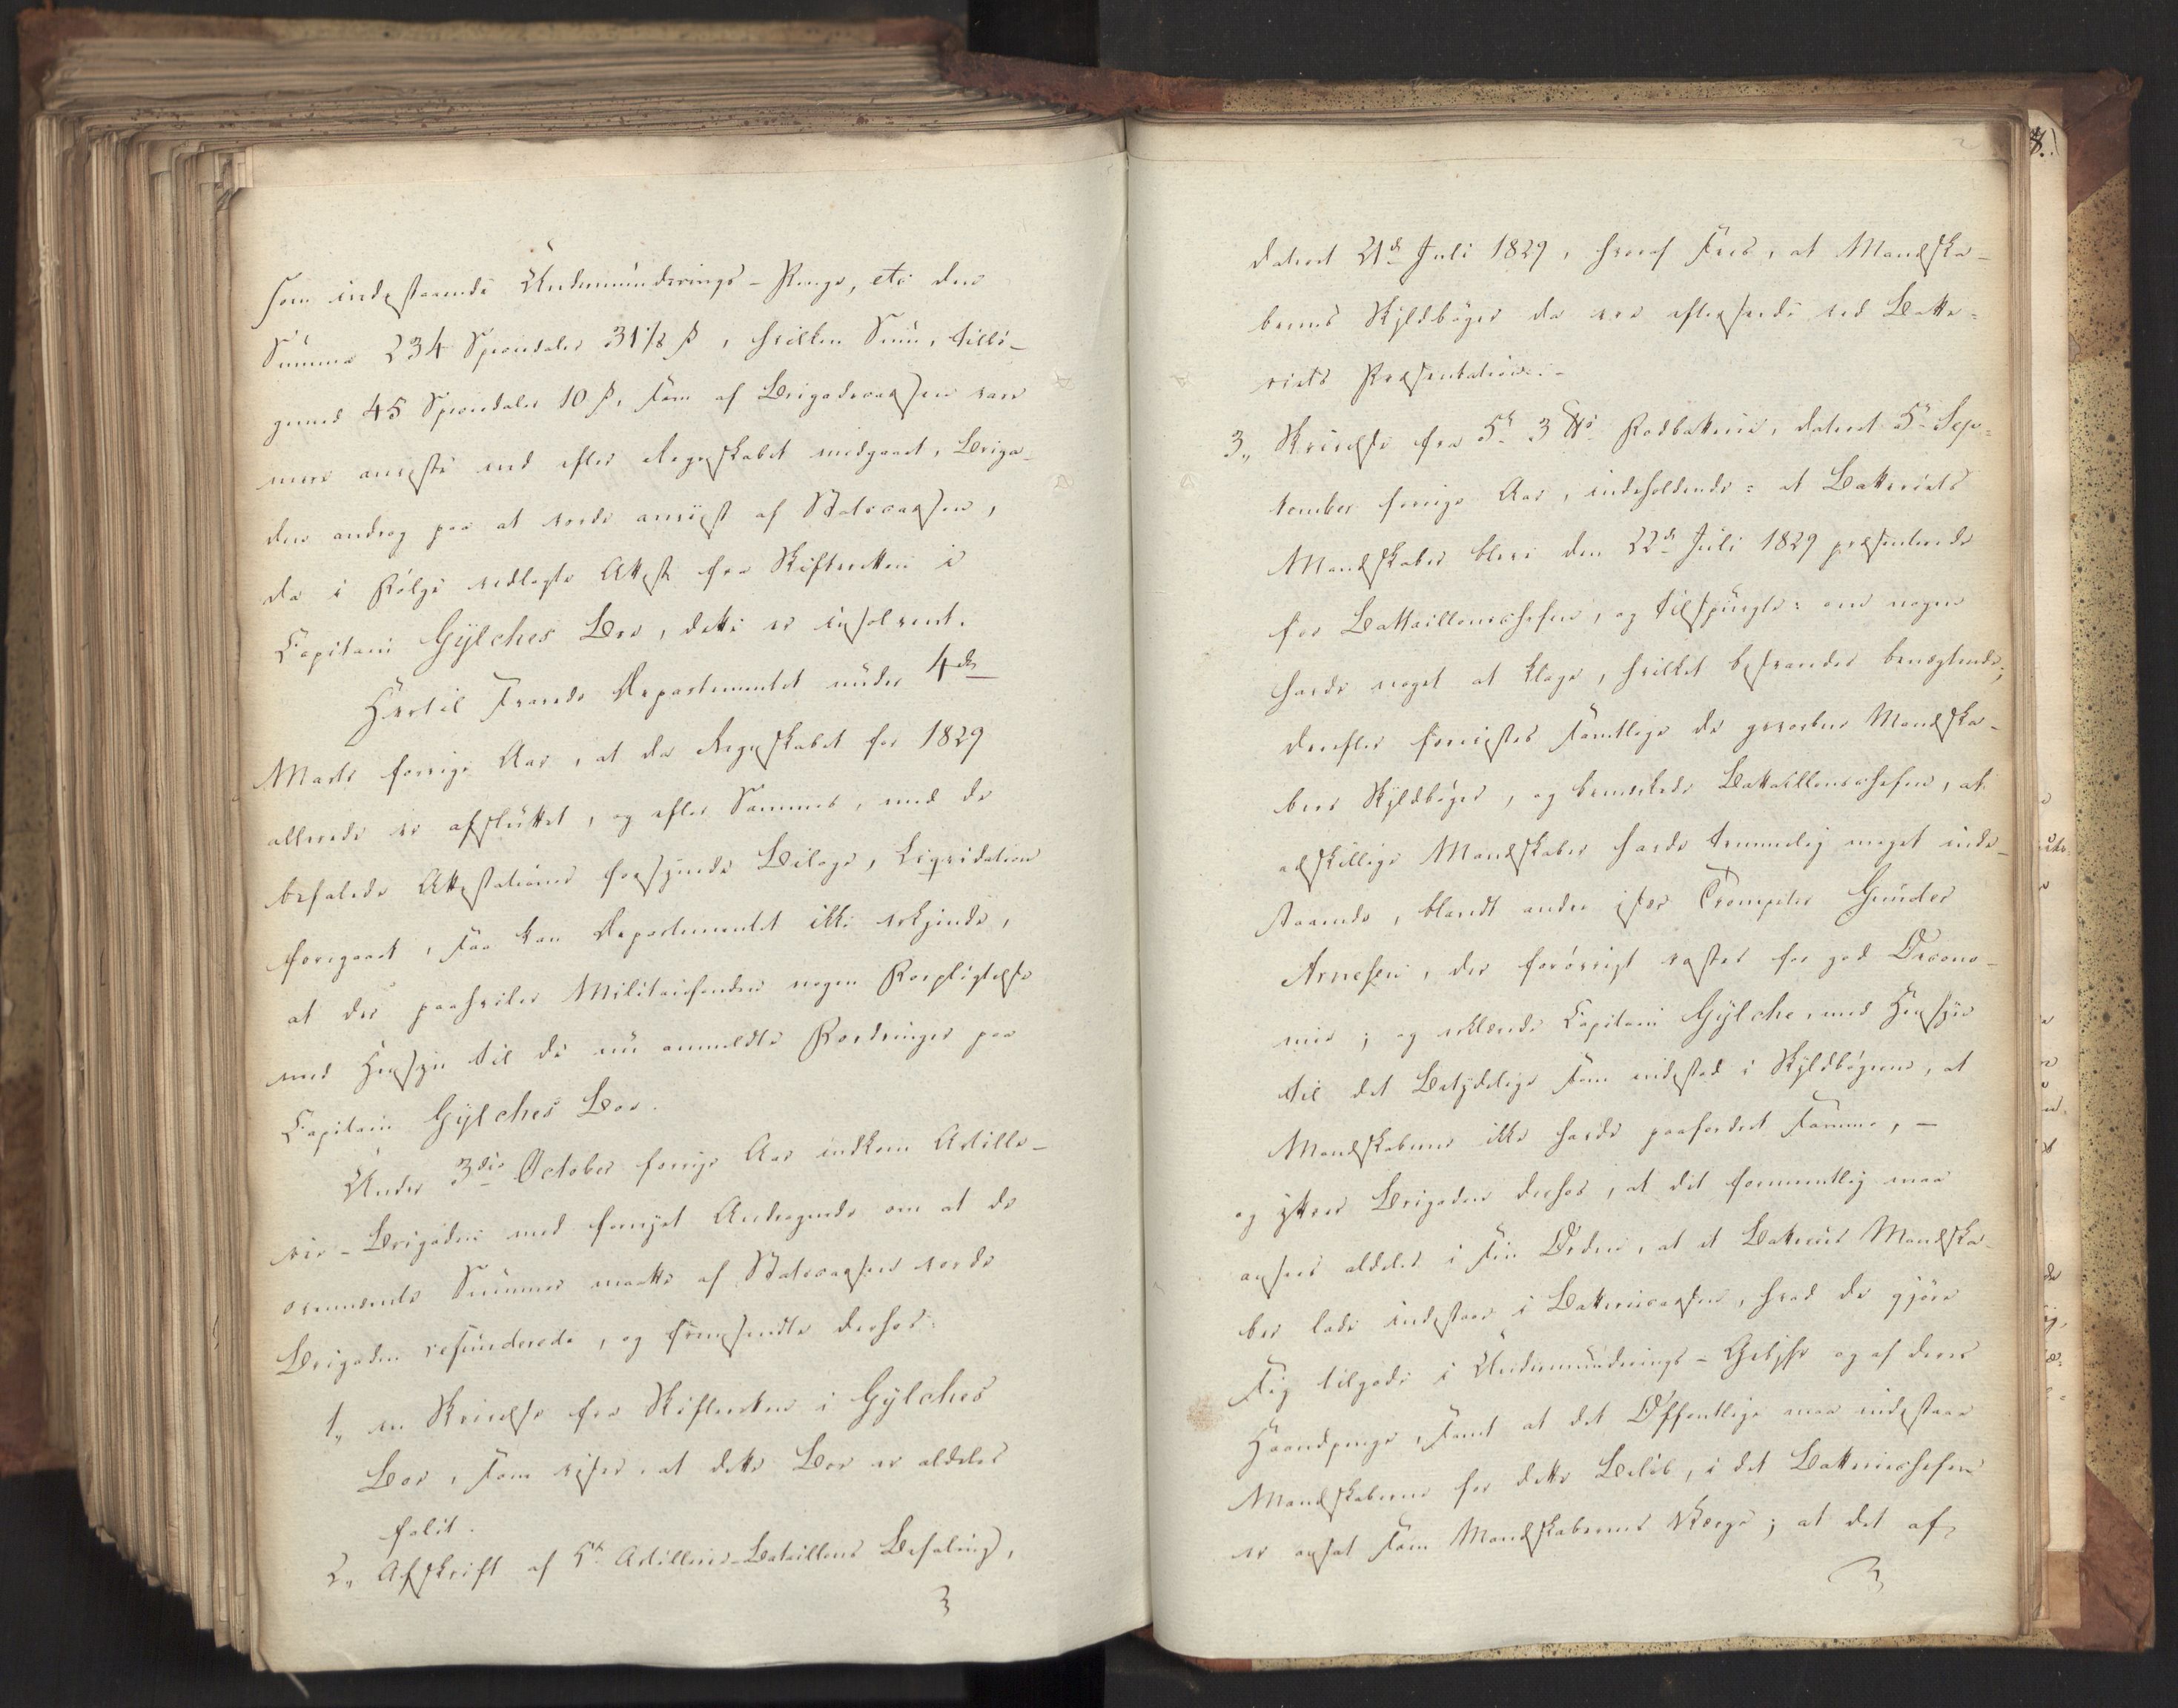 som indestaaende Undermunderings-Penge, etc: den
Summa 234 Speciedaler 31 1/2 ß, hvilken Sum, tillige
med 45 Speciedaler 10 ß, som af Brigadecassen vare
mere anviste end efter Regnskabet medgaaet, Briga-
den androg paa at vorde anviist af Statscassen,
da i Følge vedlagte Attest fra Skifteretten i
Capitain Gÿlches Boe, dette er insolvent.
Hertil svarede Departementet under 4de
Marts forrige Aar, at da Regnskabet for 1829
allerede er afsluttet, og efter Sammes, med de
befalede Attestationer forsynede Bilage, Liqvidation
foregaaet, saa kan Departementet ikke erkjende,
at der paahviler Militairfonden nogen Forpligtelse
med Hensyn til de nu anmeldte Fordringer paa
Capitain Gÿlches Boe.
Under 3die October forrige Aar indkom Artille-
rie-Brigaden med fornyet Andragende om at de
ovennævnte Summer maatte af Statscassen vorde
Brigaden refunderede, og fremsendte derhos:
1, en Skrivelse fra Skifteretten i Gÿlches
Boe, som viser, at dette Boe er aldeles
falit.
2, Afskrift af 5te Artillerie-Bataillons Befaling,
dateret 21de Juli 1829, hvoraf sees, at Mandska-
bernes Skyldbøger da var eftersendte ved Batte-
riets Præsentation.-
3, Skrivelse fra 5te 3 ℔s Fodbatterie, dateret 5te Sep-
tember forrige Aar, indeholdende: at Batteriets
Mandskaber bleve den 22de Juli 1829 præsenterede
for Battaillonschefen, og tilspurgte: om nogen
havde noget at klage, hvilket besvaredes benægtende;
derefter foreviistes samtlige de gevorbne Mandska-
bers Skyldbøger, og bemærkede Battaillonschefen, at
adskillige Mandskaber havde temmelig meget inde-
staaende, blandt andre især Trompeter Gunder
Arnesen, der forøvrigt roestes for god Oecono-
mie; og erklærede Capitain Gÿlche, med Hensyn
til det Betydelige som indestod i Skyldbøgerne, at
Mandskaberne ikke havde paafordret samme, —
og yttrer Brigaden derhos, at det formeentlig maa
ansees aldeles i sin Orden, at et Batteries Mandska-
ber lade indestaae i Batteriecassen, hvad de gjøre
sig tilgode i Undermunderings-Godtgjørelse og af deres
Haandpenge, samt at det Offentlige maa indestaae
Mandskaberne for dette Beløb, i det Batteriechefen
er ansat som Mandskabernes Værge; at det af